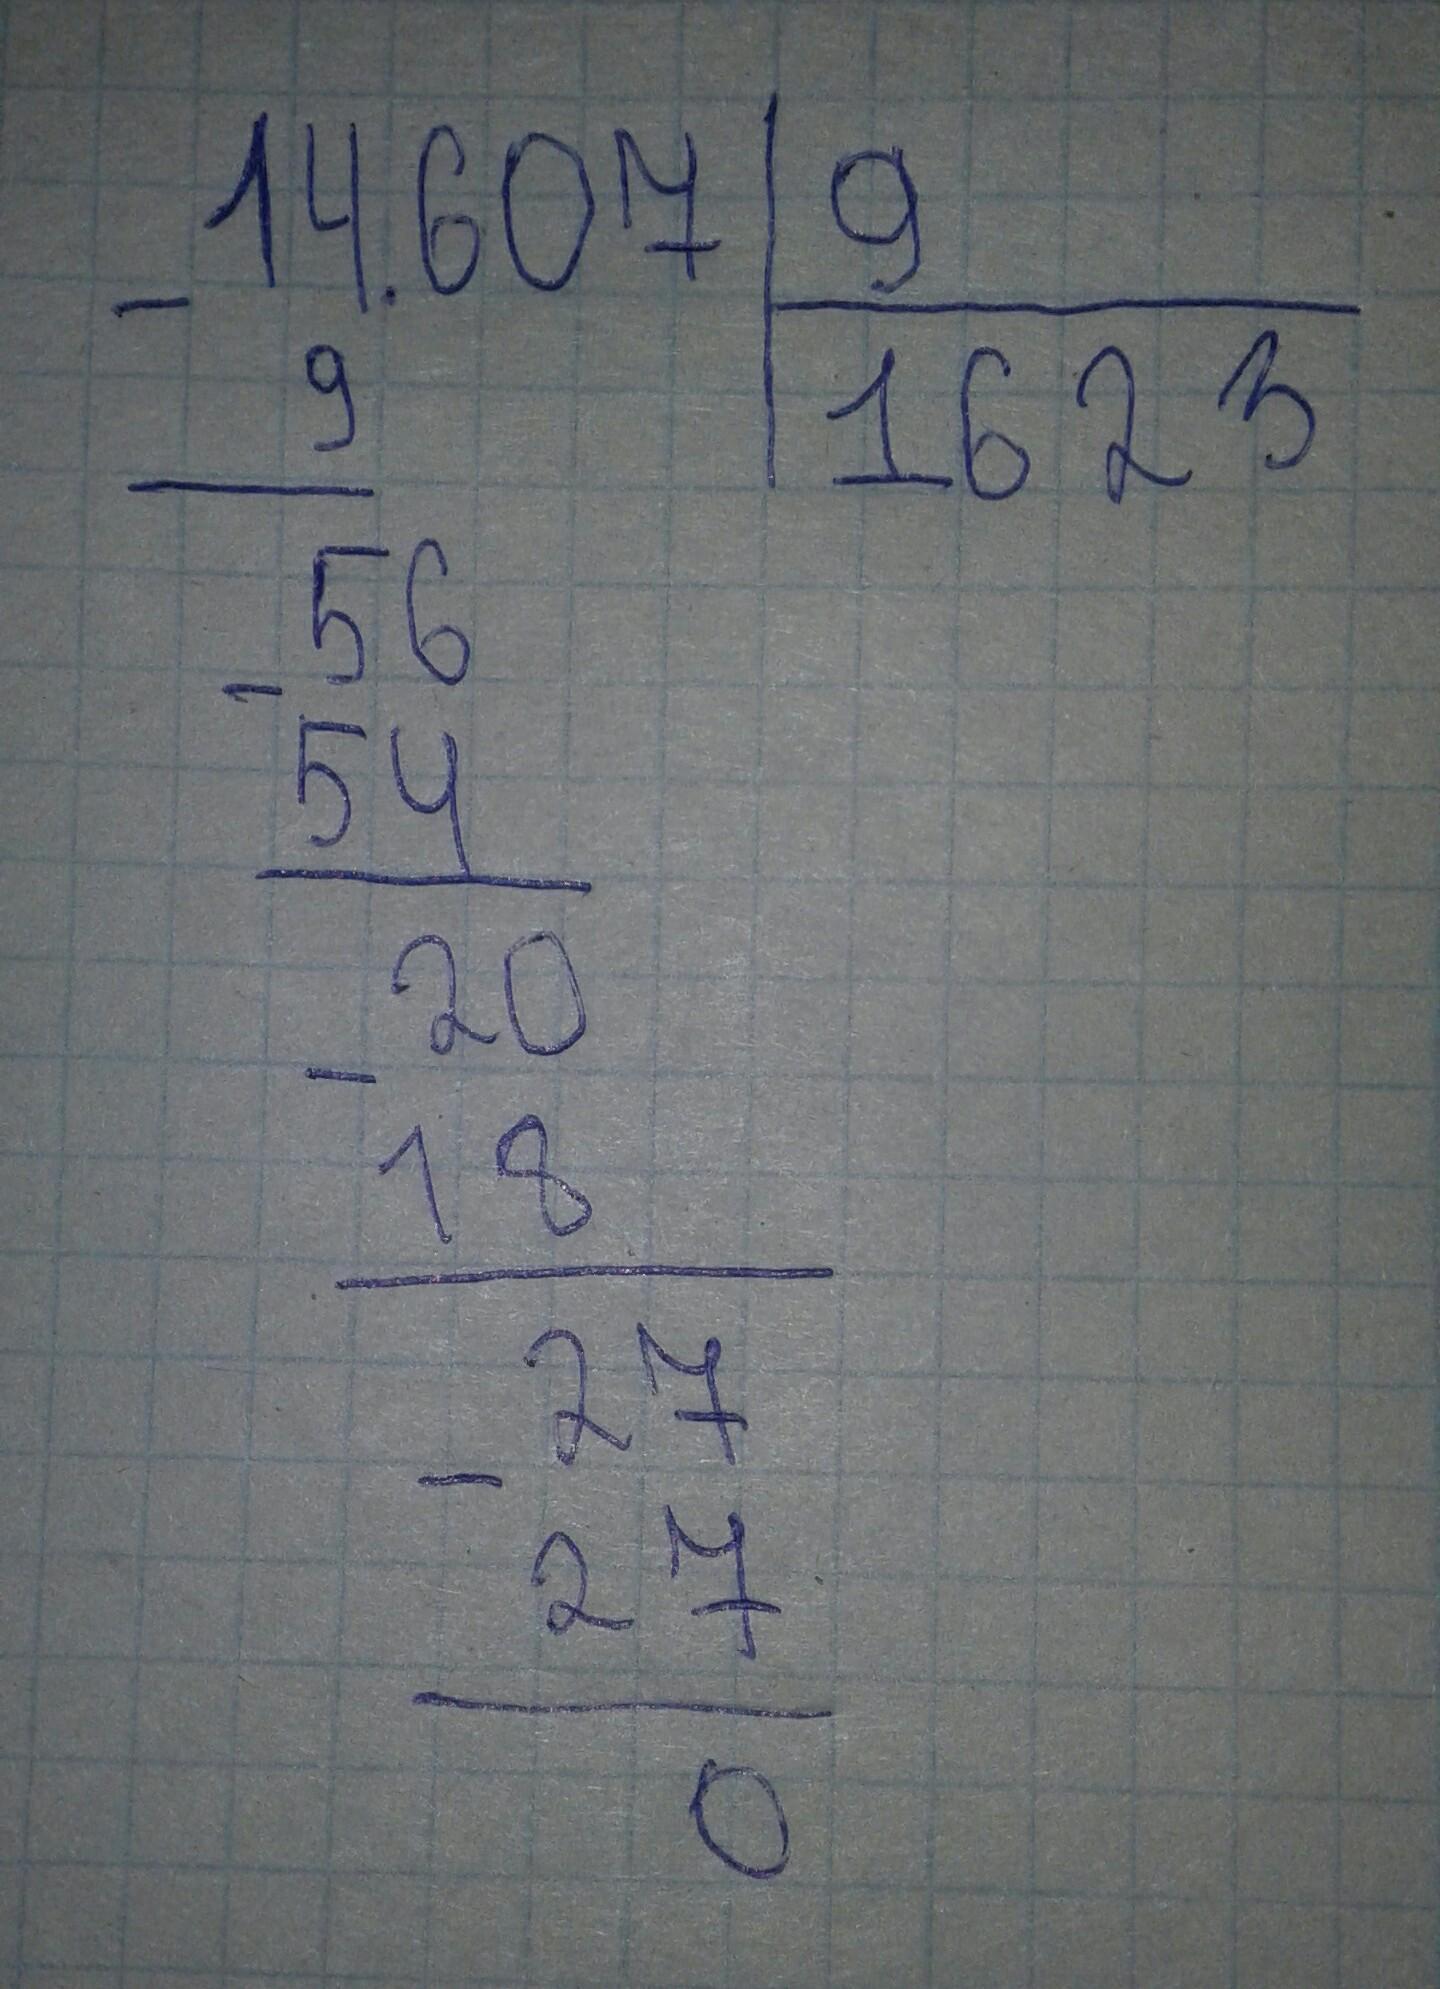 14.607 9
- 9 1623
56
- 54
20
- 18
27
- 27
0